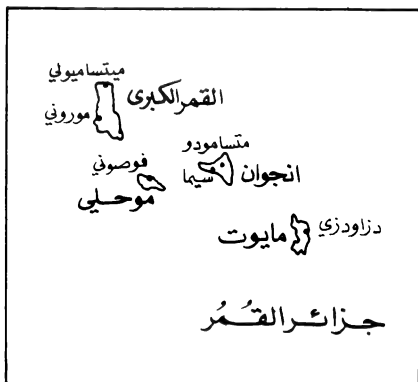 ميتساميولي
القمر الكبرى
موروني
متسامودو
فوصوني
سيما
انجوان
موحلي
دزاودزي
مايوت
جزائر القُمُر